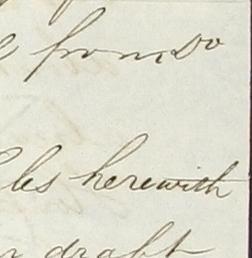 from Do
les herewith
draft